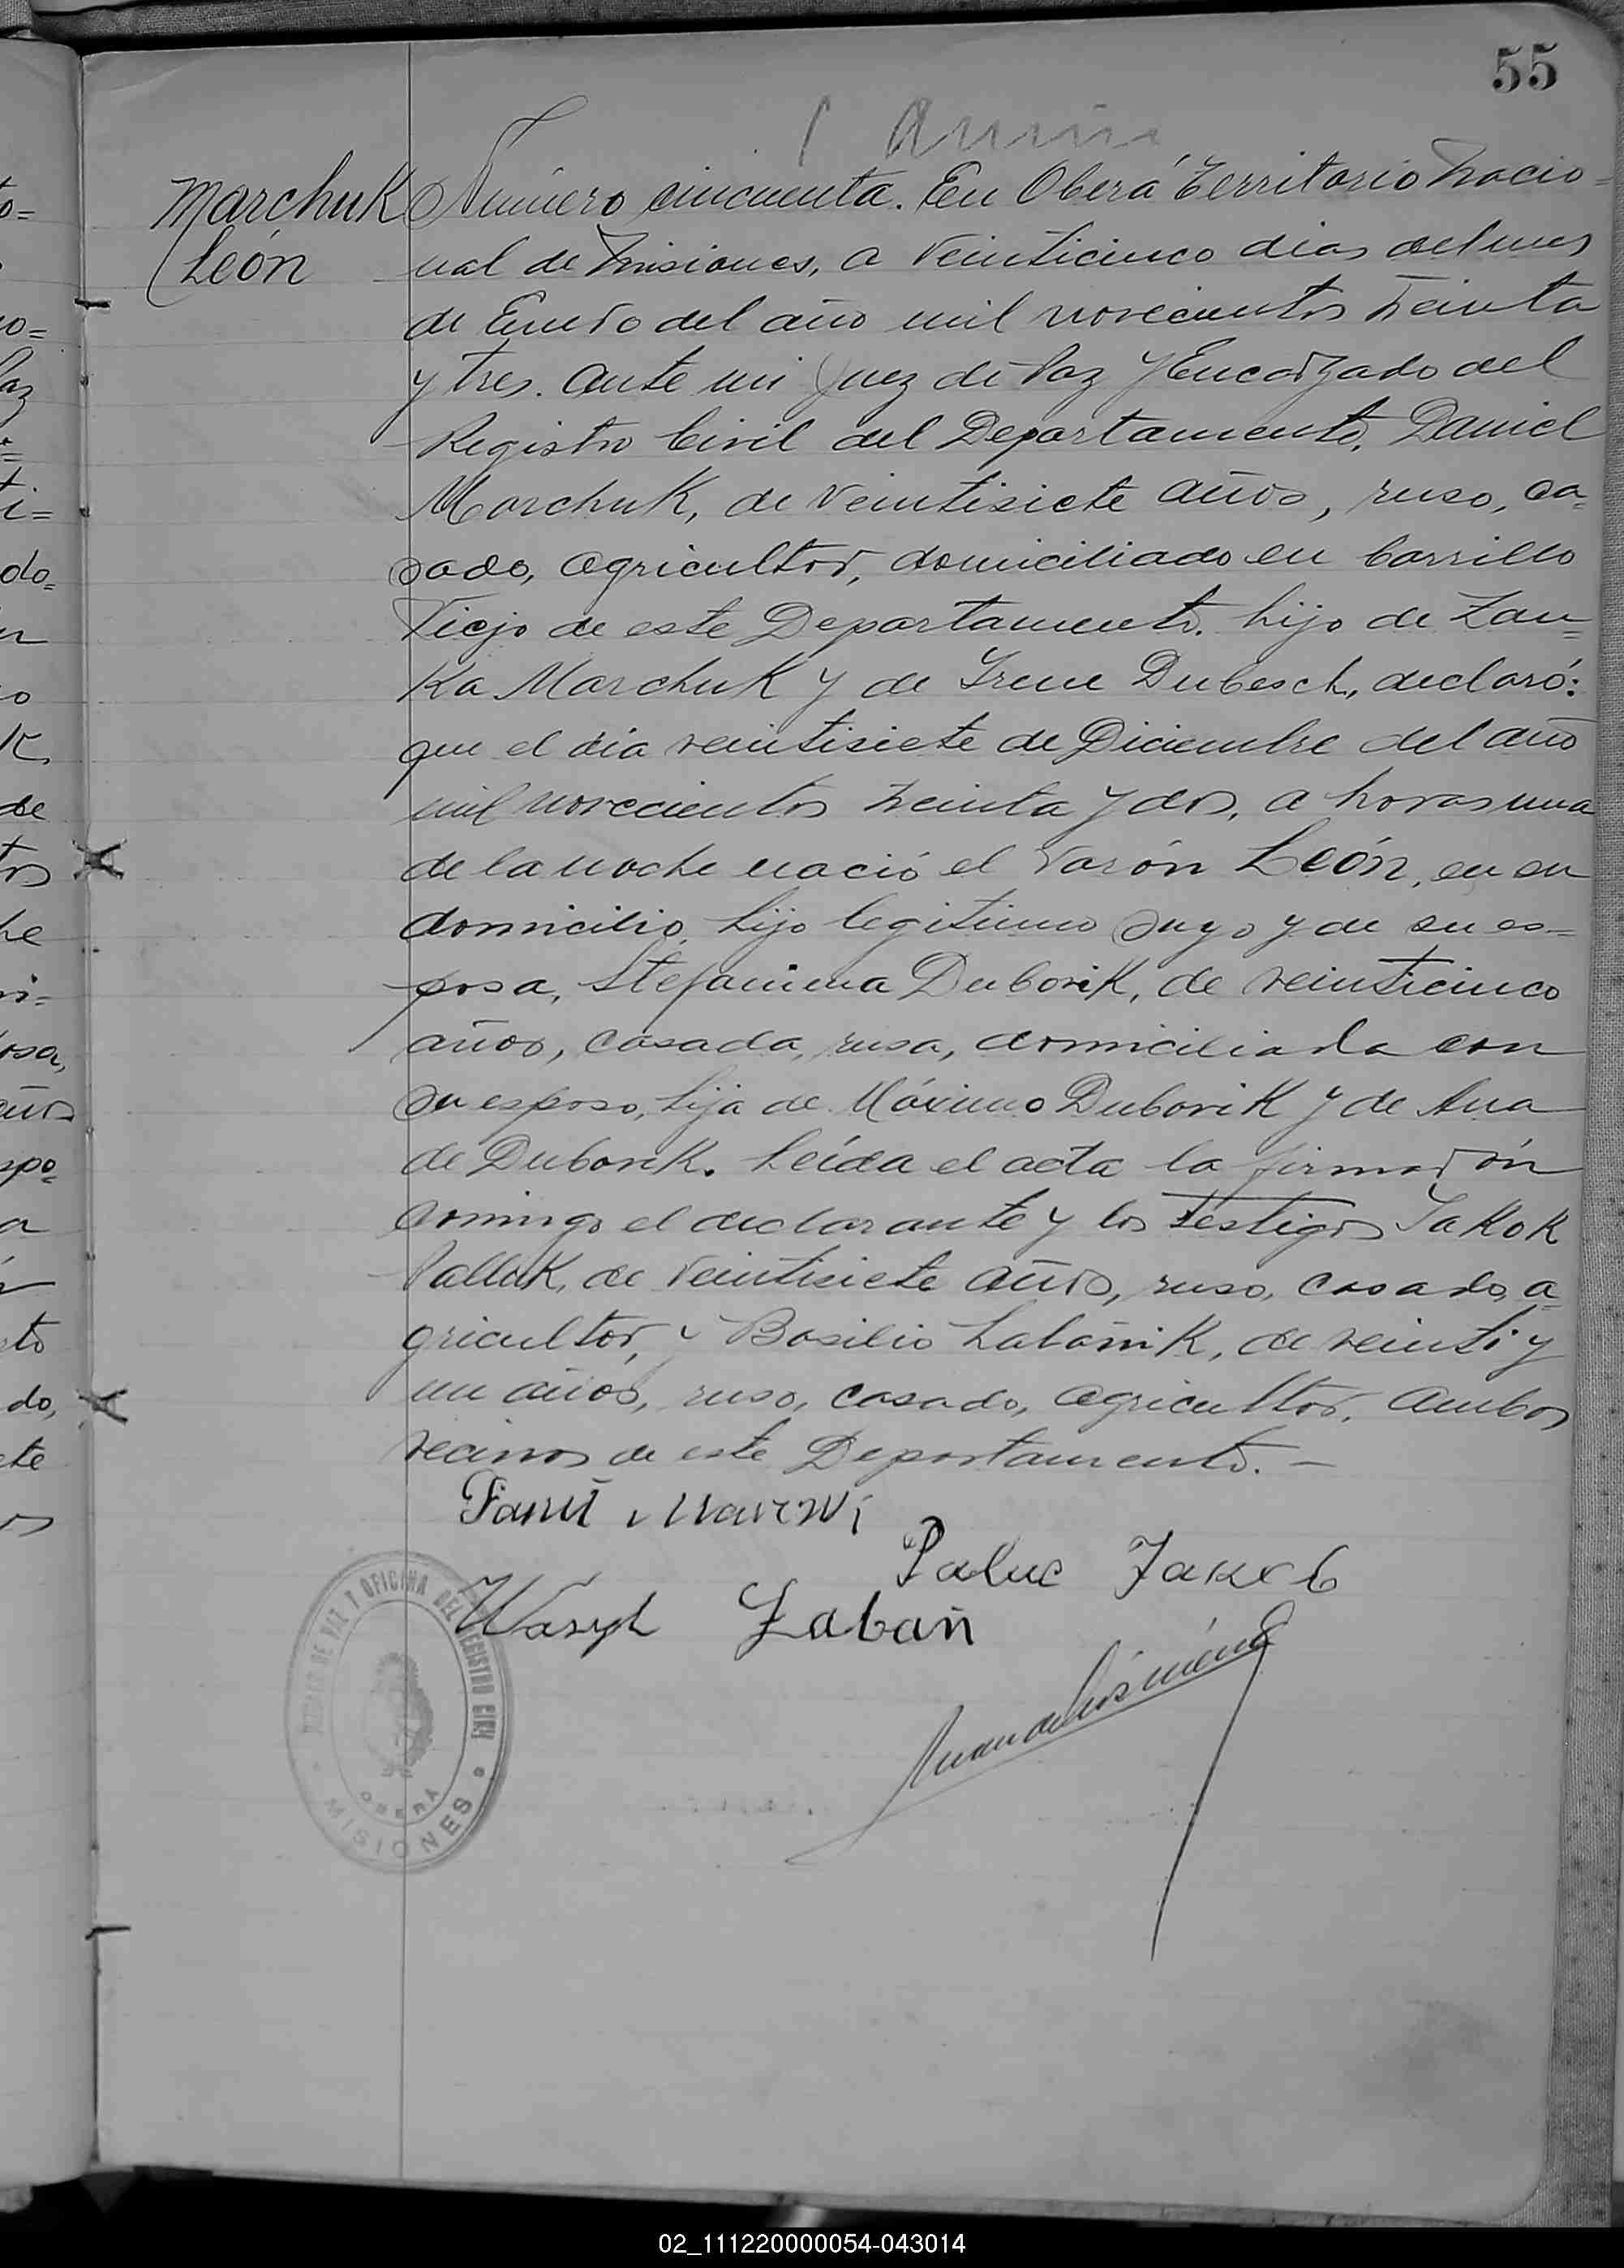 55
Marchuk
León
Número cincuenta. En Oberá Territorio Nacio-
nal de Misiones, a veinticinco dias del mes
de Enero del año mil novecientos treinta
y tres. Ante mi Juez de Paz y Encargado del
Registro Civil del Departamento, Daniel
Marchuk, de veintisiete años, ruso, ca-
sado, agricultor, domiciliado en Carrillo
Viejo de este Departamento. hijo de Zan-
ka Marchuk y de Irene Dubesch, declaró:
que el dia veintisiete de Diciembre del año
mil novecientos treinta y dos, a horas una
de la noche nació el varón León, en su
domicilio, hijo legitimo suyo y de su es-
posa, Stefanina Dubovik, de veinticinco
años, casada, rusa, domiciliada con
su esposo, hija de Máximo Dubovik y de Ana
de Dubovik. Leída el acta la firmarón
conmigo el declarante y los testigos Jakok
Palluk, de veintisiete años, ruso, casado, a-
gricultor, y Basilio Labañik, de veinti y
un años, ruso, casado, agricultor. Ambos
vecinos de este Departamento. —
Paluc Jakob
Wasyl Labań
JUZGADO DE PAZ Y OFICINA DEL REGISTRO CIVIL
OBERÁ
MISIONES
02_111220000054-043014